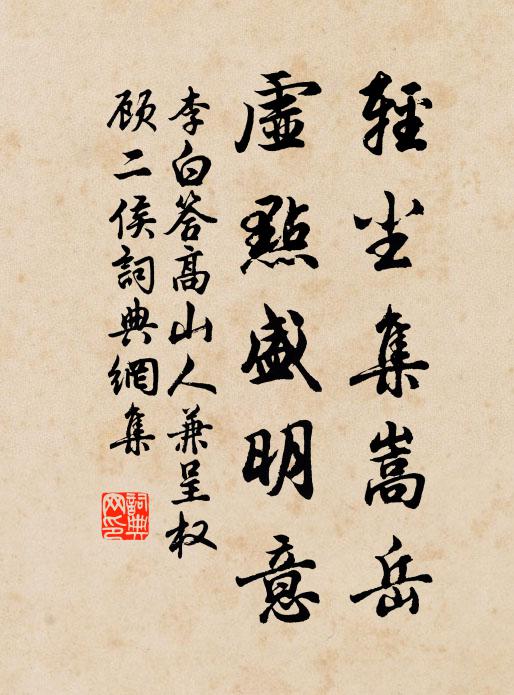 輕尘集嵩岳
虚點盛明意
李白答高山人兼呈权
顾二侯詞典網集
詞典
网印